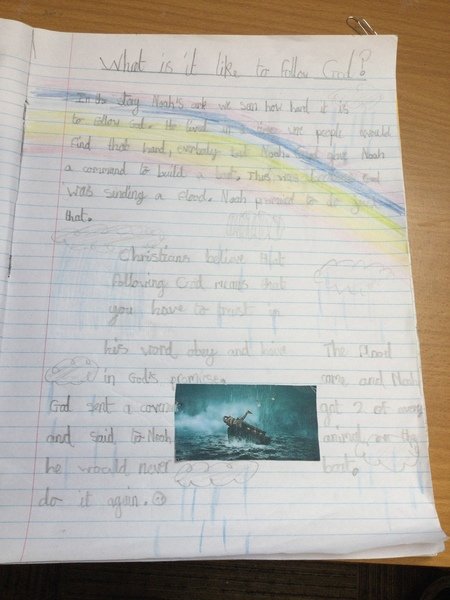 What is it like to follow God?
In the story Noah's ark we saw how hard it is
to follow God. He lived in a time were people would
find that hard, everybody but Noah. God gave Noah
a command to build a boat. This was because God
was sending a flood. Noah promised to do just
that.
Christians believe that
following God means that
you have to trust
his word obey and have
in God's promise.
God sent a
and said to Noah
he would never
do it again.
The flood
came and Noah
got 2 of every
animal on the
boat.